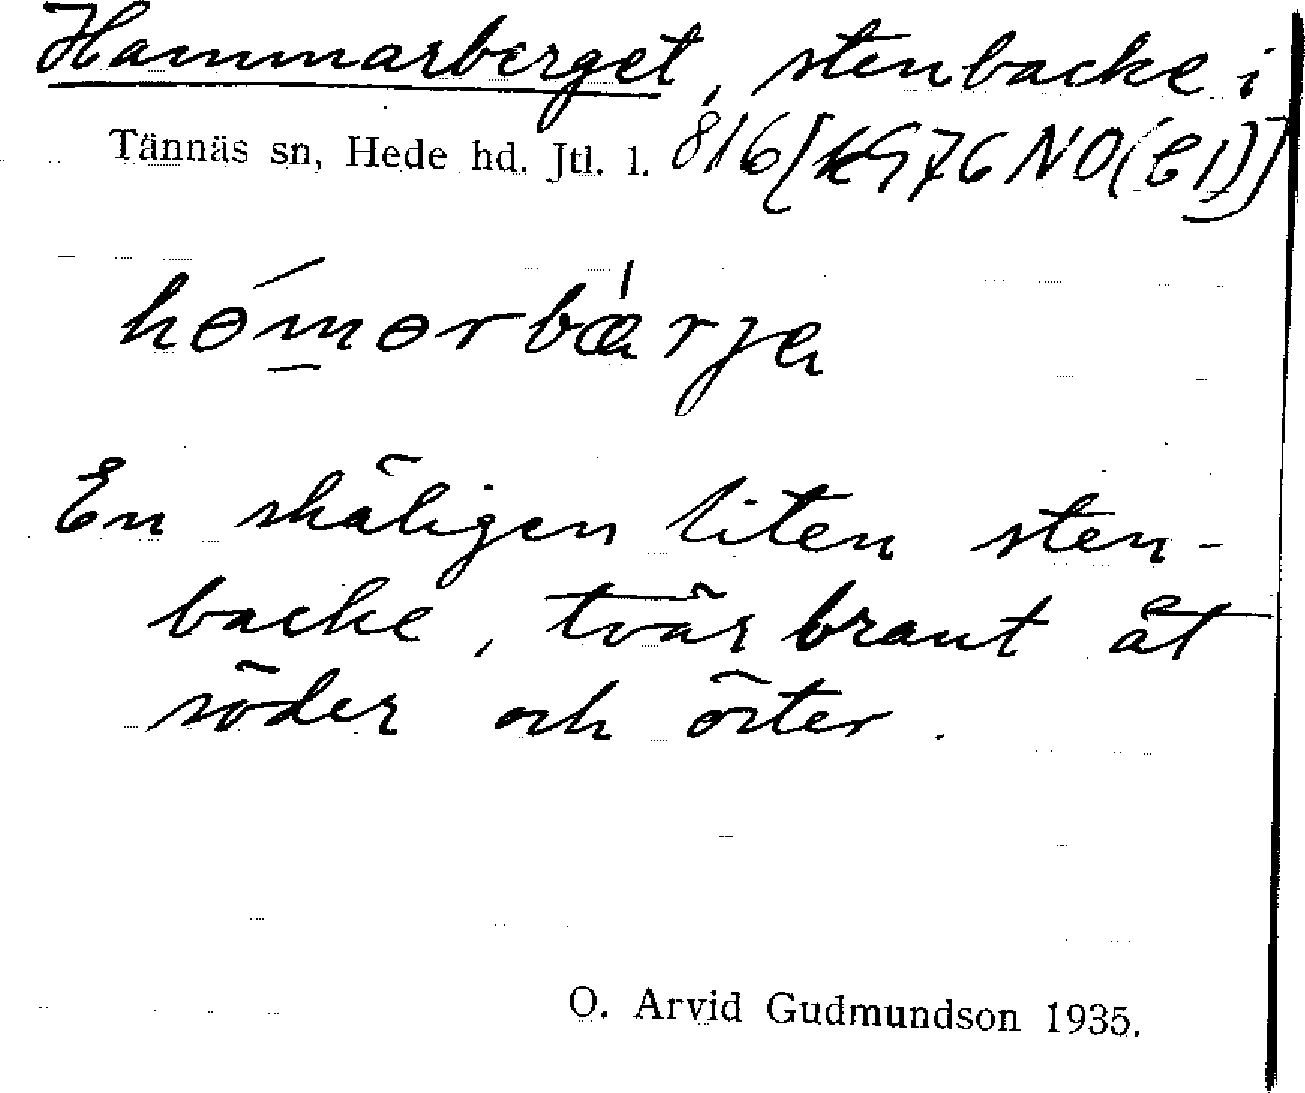 Hammarberget, stenbacke i
Tännäs sn, Hede hd. Jtl. l. 816 [KG76NO(B1)]
hǿmørbæ'rja
En skäligen liten sten-
backe, tvär brant åt
söder och öster.
O. Arvid Gudmundson 1935.